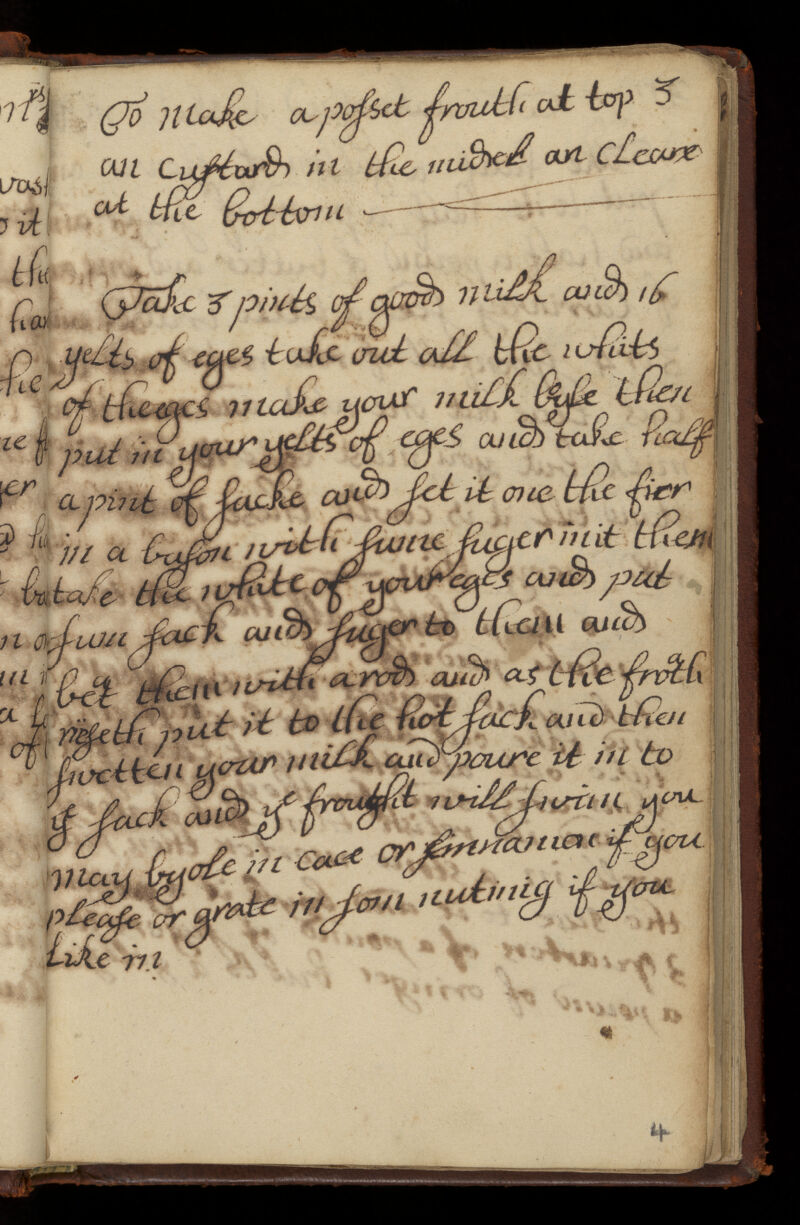 To make a posset frouth at top 3
an Custard in the midel an Cleare
at the bottom
Take 3 pints of good milk and 16
yelts of eges take out all the whits
of the eges make your milk byle then
put in your yelts of eges and take half
a pint of sacke and set it one the fier
in a bason with sume suger in it then
take the white of your eges and put
sum sack and suger to them and
bet them with a rod and as the froth
riseth put it to the hot sack and then
swetten your milk and poure it in to
ye sack and ye frought will swim you
may byole in cace or sinnamon if you
please or grate in som nutmig if you
like in
4